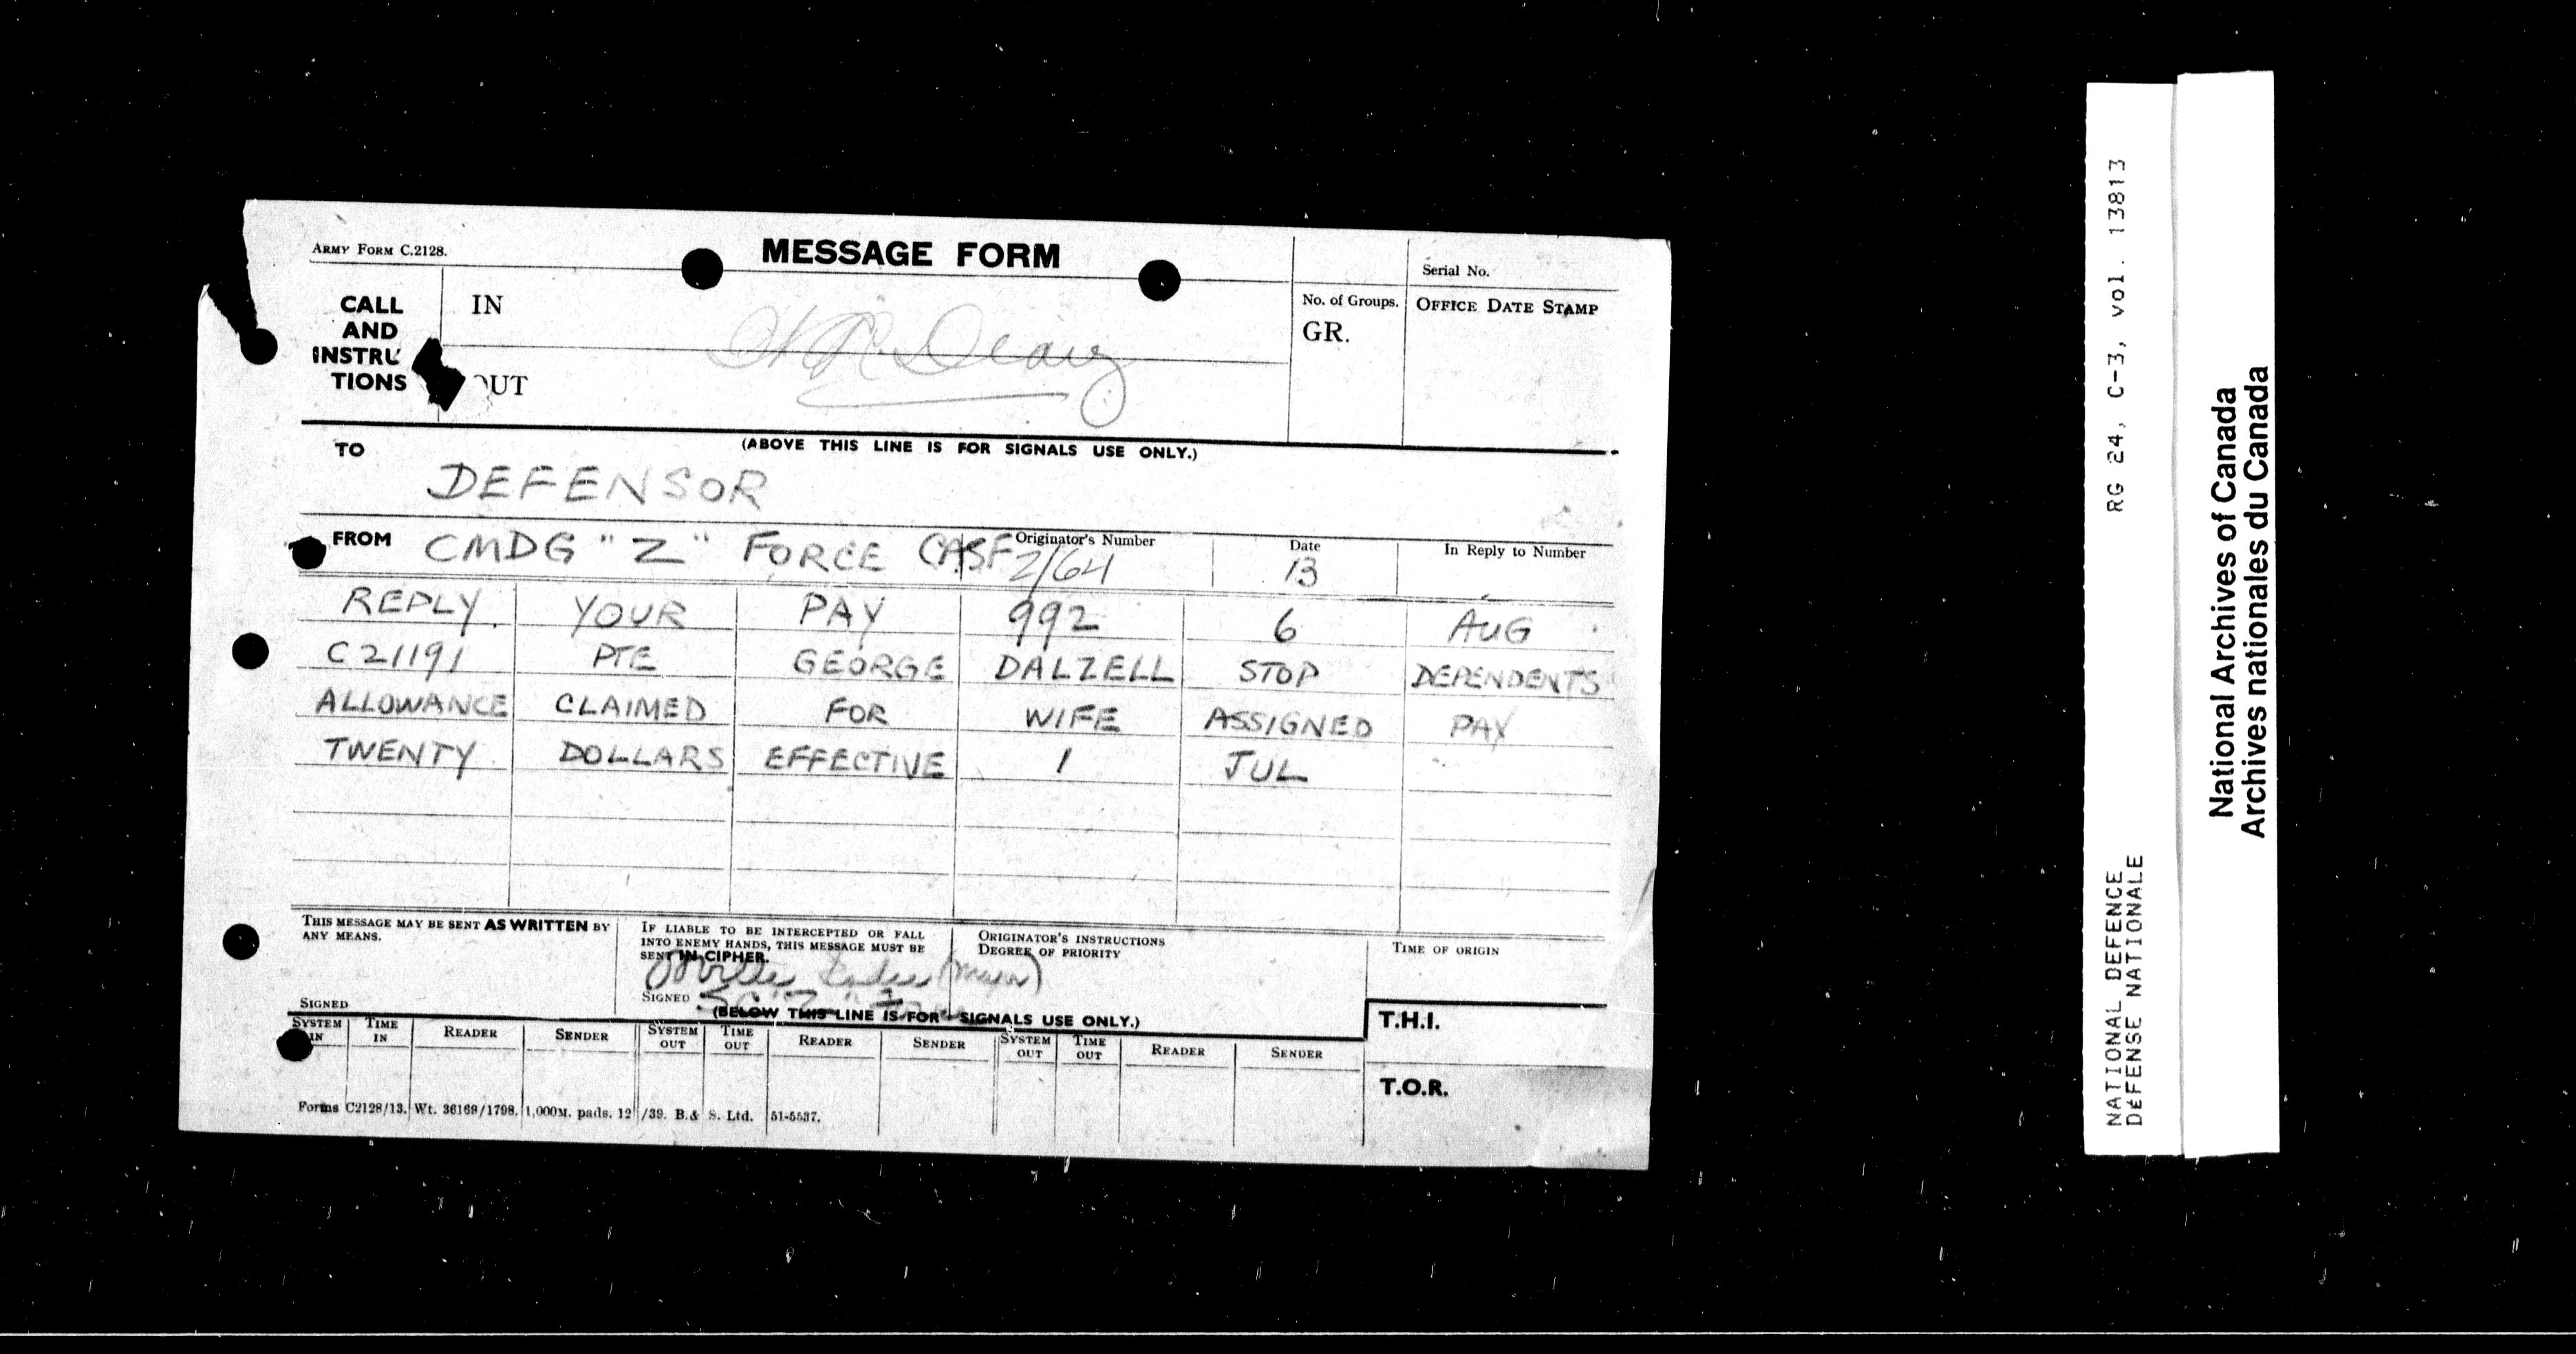 ARMY FORM C.2128.
MESSAGE FORM
Serial No.
CALL
AND
INSTRU
TIONS
IN
OUT
No. of Groups.
GR.
OFFICE DATE STAMP
(ABOVE THIS LINE IS FOR SIGNALS USE ONLY.)
TO
DEFENSOR
FROM CMDG "Z" FORCE CASF
Originator's Number
2/64
Date
13
In Reply to Number
REPLY YOUR PAY 992 6 AUG
C21191 PTE GEORGE DALZELL STOP DEPENDENTS
ALLOWANCE CLAIMED FOR WIFE ASSIGNED PAY
TWENTY DOLLARS EFFECTIVE 1 JUL
THIS MESSAGE MAY BE SENT AS WRITTEN BY
ANY MEANS.
SIGNED
IF LIABLE TO BE INTERCEPTED OR FALL
INTO ENEMY HANDS, THIS MESSAGE MUST BE
SENT IN CIPHER.
(Major)
SIGNED
ORIGINATOR'S INSTRUCTIONS
DEGREE OF PRIORITY
TIME OF ORIGIN
(BELOW THIS LINE IS FOR SIGNALS USE ONLY.)
T.H.I.
SYSTEM IN TIME IN READER SENDER SYSTEM OUT TIME OUT READER SENDER SYSTEM OUT TIME OUT READER SENDER
T.O.R.
Forms C2128/13. Wt. 36168/1798. 1,000M. pads. 12/39. B.& S. Ltd. 51-5537.
NATIONAL DEFENCE RG 24, C-3, vol. 13813
DÉFENSE NATIONALE
National Archives of Canada
Archives nationales du Canada